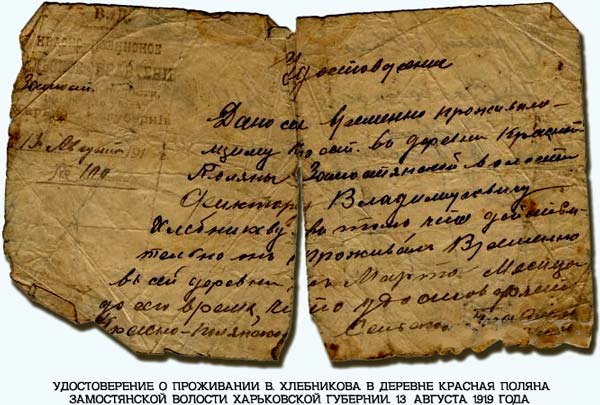 В.П.К.
Красно-Полянское
губернии
13 Августа 191
№ 109
Удостоверение
Дано сие временно проживаю-
щему в деревни Красной
Поляны Замостянской волости
Виктору Владимировичу
Хлебникову в том что действи-
тельно он проживал временно
в сей деревни с Марта Месяца
до сего времени, что удостоверяем
Красно-Полянское
УДОСТОВЕРЕНИЕ О ПРОЖИВАНИИ В. ХЛЕБНИКОВА В ДЕРЕВНЕ КРАСНАЯ ПОЛЯНА
ЗАМОСТЯНСКОЙ ВОЛОСТИ ХАРЬКОВСКОЙ ГУБЕРНИИ. 13 АВГУСТА 1919 ГОДА